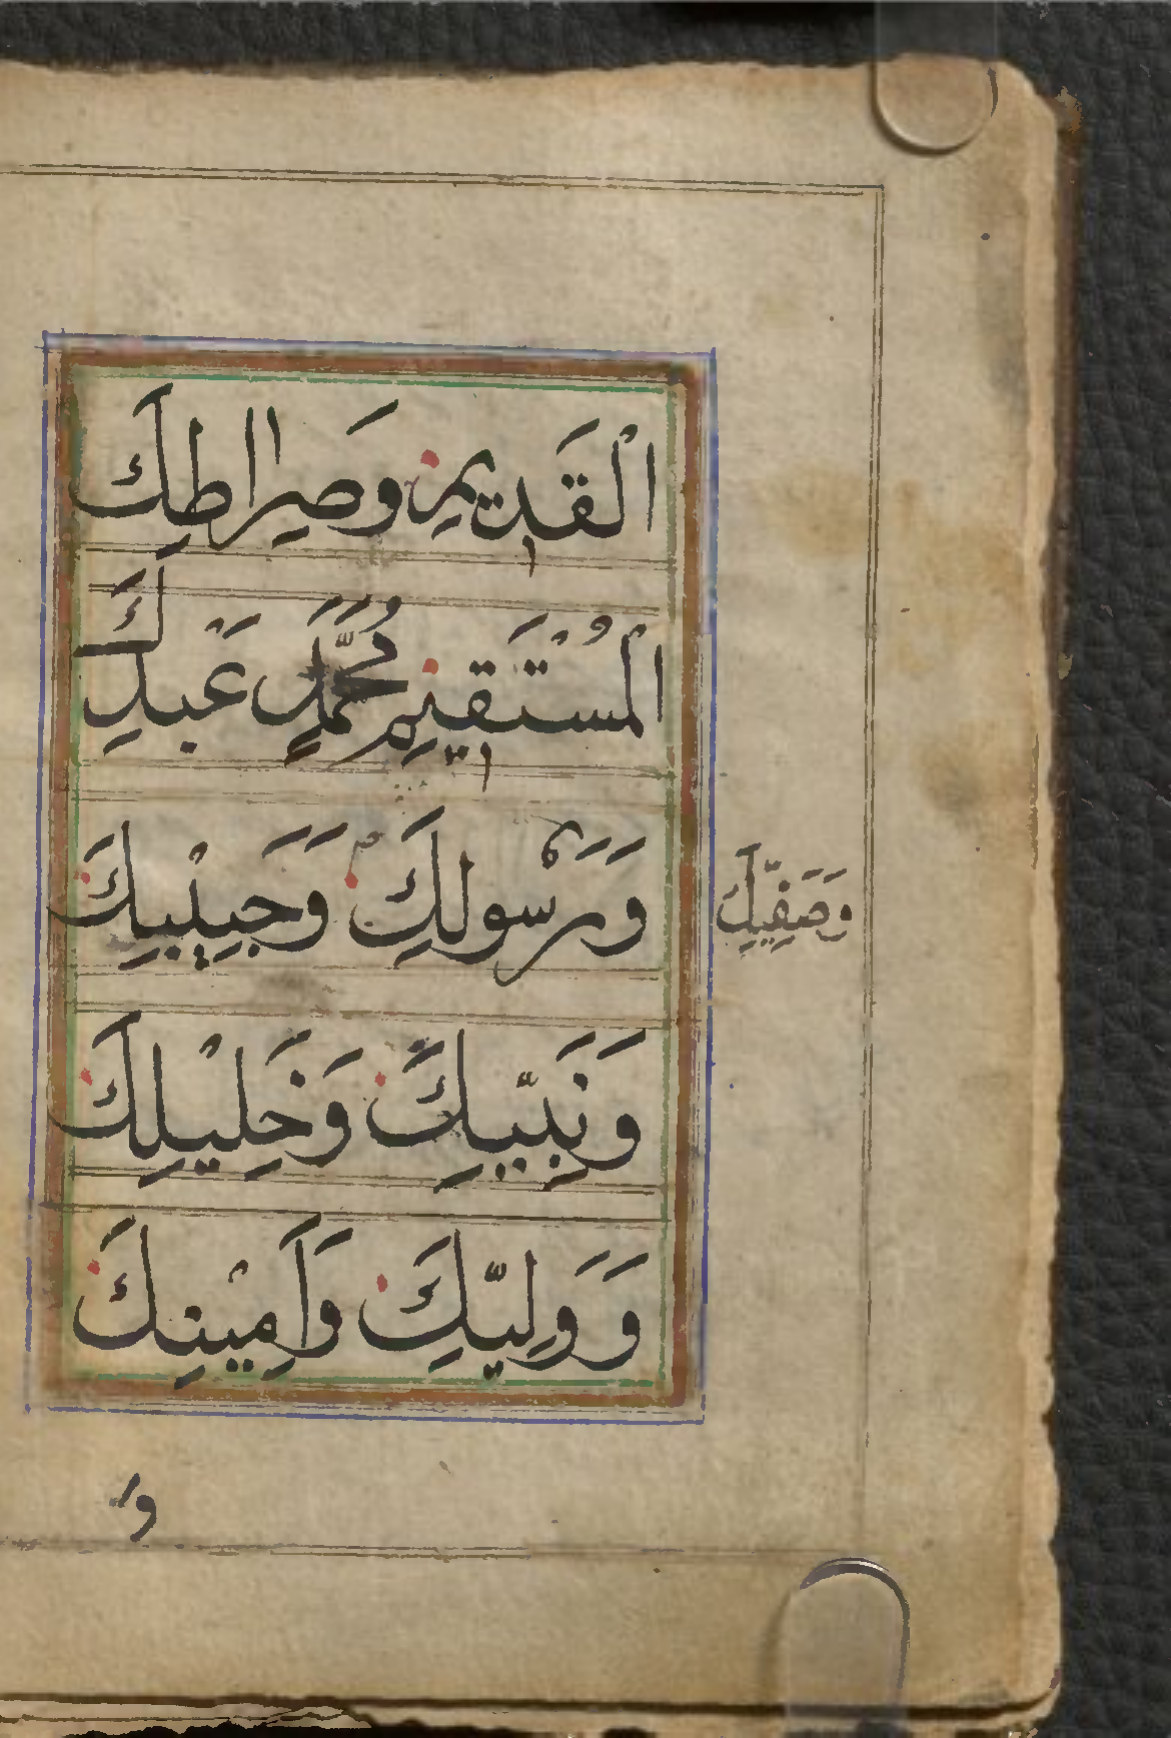 الْقَدِيمِ وَصِرَاطِكَ
الْمُسْتَقِيْمِ مُحَمَّدٍ عَبْدِكَ
وَرَسُولِكَ وَحَبِيْبِكَ
وَصَفِيِّكَ
وَنَبِيِّكَ وَخَلِيْلِكَ
وَوَلِيِّكَ وَاَمِيْنِكَ
وَ